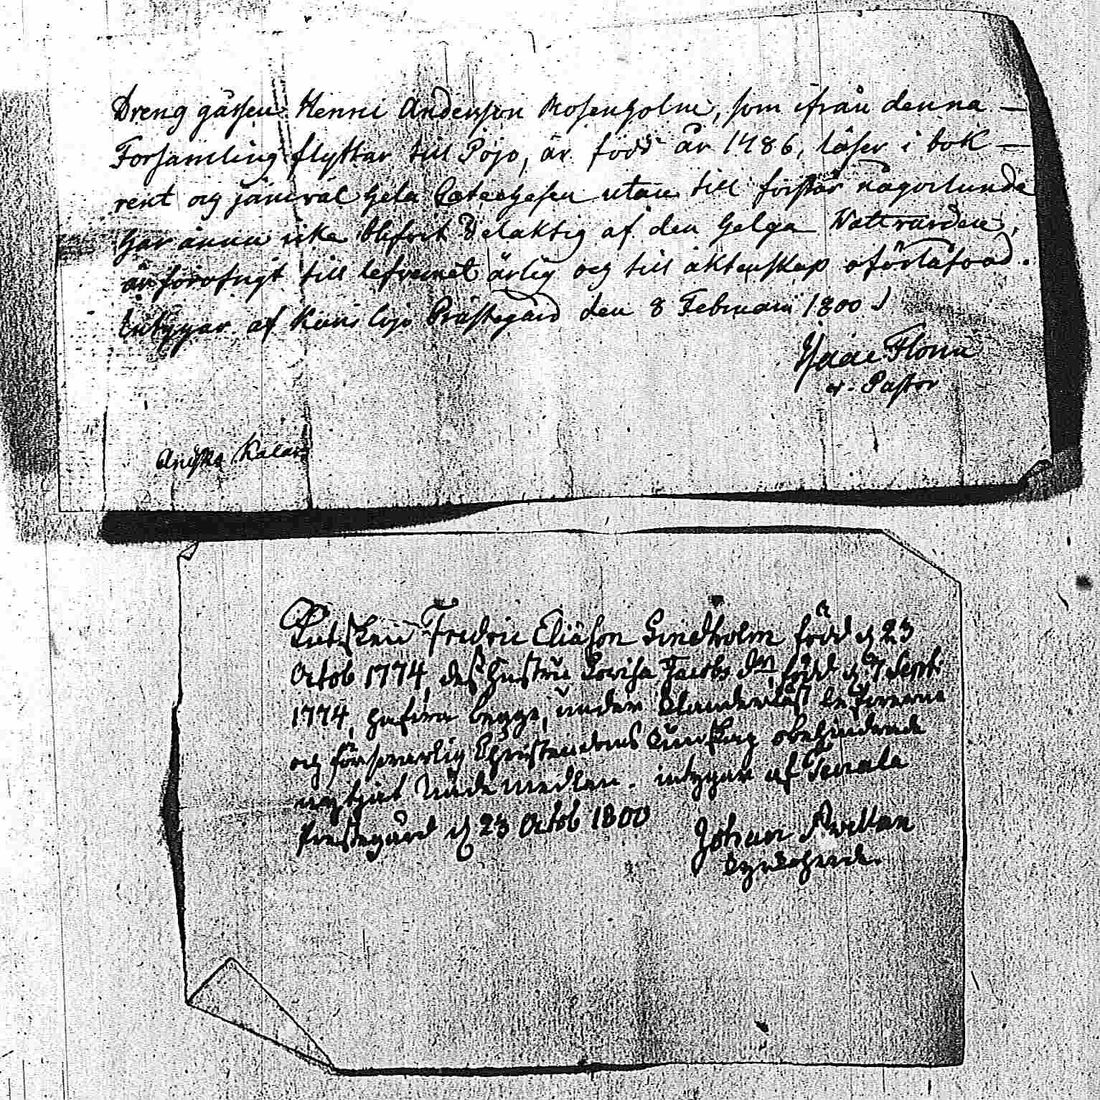 Dreng gåssen Henric Andersson Rosenholm, som ifrån denna
Församling flyttar till Pojo, är född år 1786, läser i bok
rent og jämväl hela Catechesen utan till förstår någorlunda
har ännu icke blifvit delaktig af den helga Nattvarden,
är föröfrigt till lefvernet ärlig og till äktenskap oförlåfvad.
intygar af Karis lojo Prästegård den 8 Februari 1800
Isaac Florin
v. Pastor
Kutsken Fredric Eliæson Lindholm född d 23
Octob 1774, des hustru Lovisa Jacobs dr, född d 7 Sept:
1774, hafva begge, under
og försvarlig Christendoms Kunskap obehindrade
nattjut Nådemedlen. intygar af Tenala
Prestegård d 23 Octob 1800
Johan